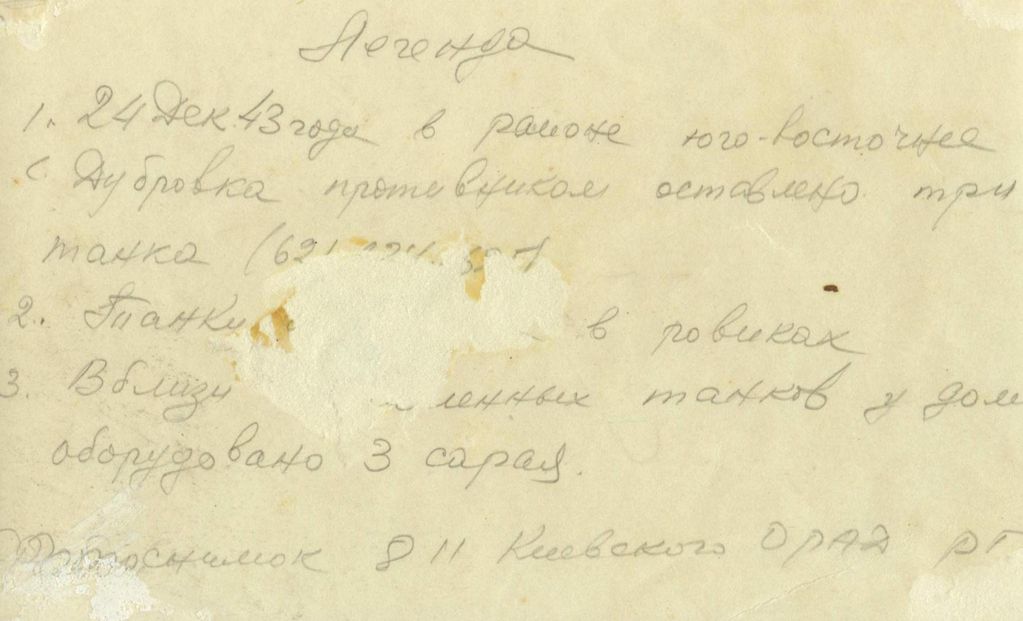 Легенда
1. 24 Дек 43 года в районе юго-восточнее
с Дубровка противником оставлено три
танка (62
2. Танки в ровиках
3. Вблизи ленных танков у дом
оборудовано 3 сарая.
Фотоснимок 8 11 Киевского ОРАП РГ